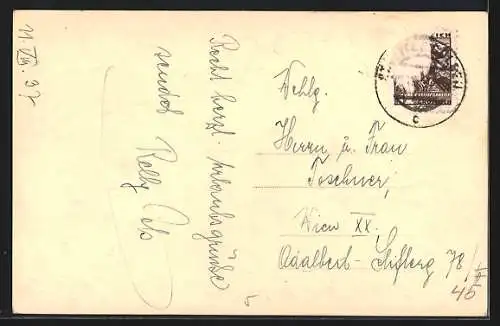 11. VIII. 37
Recht herzl. Urlaubsgrüße
sendet
Wohlg.
Herrn u. Frau
Toschner,
Wien XX.
Adalbert-Stifterg 78/
45
c